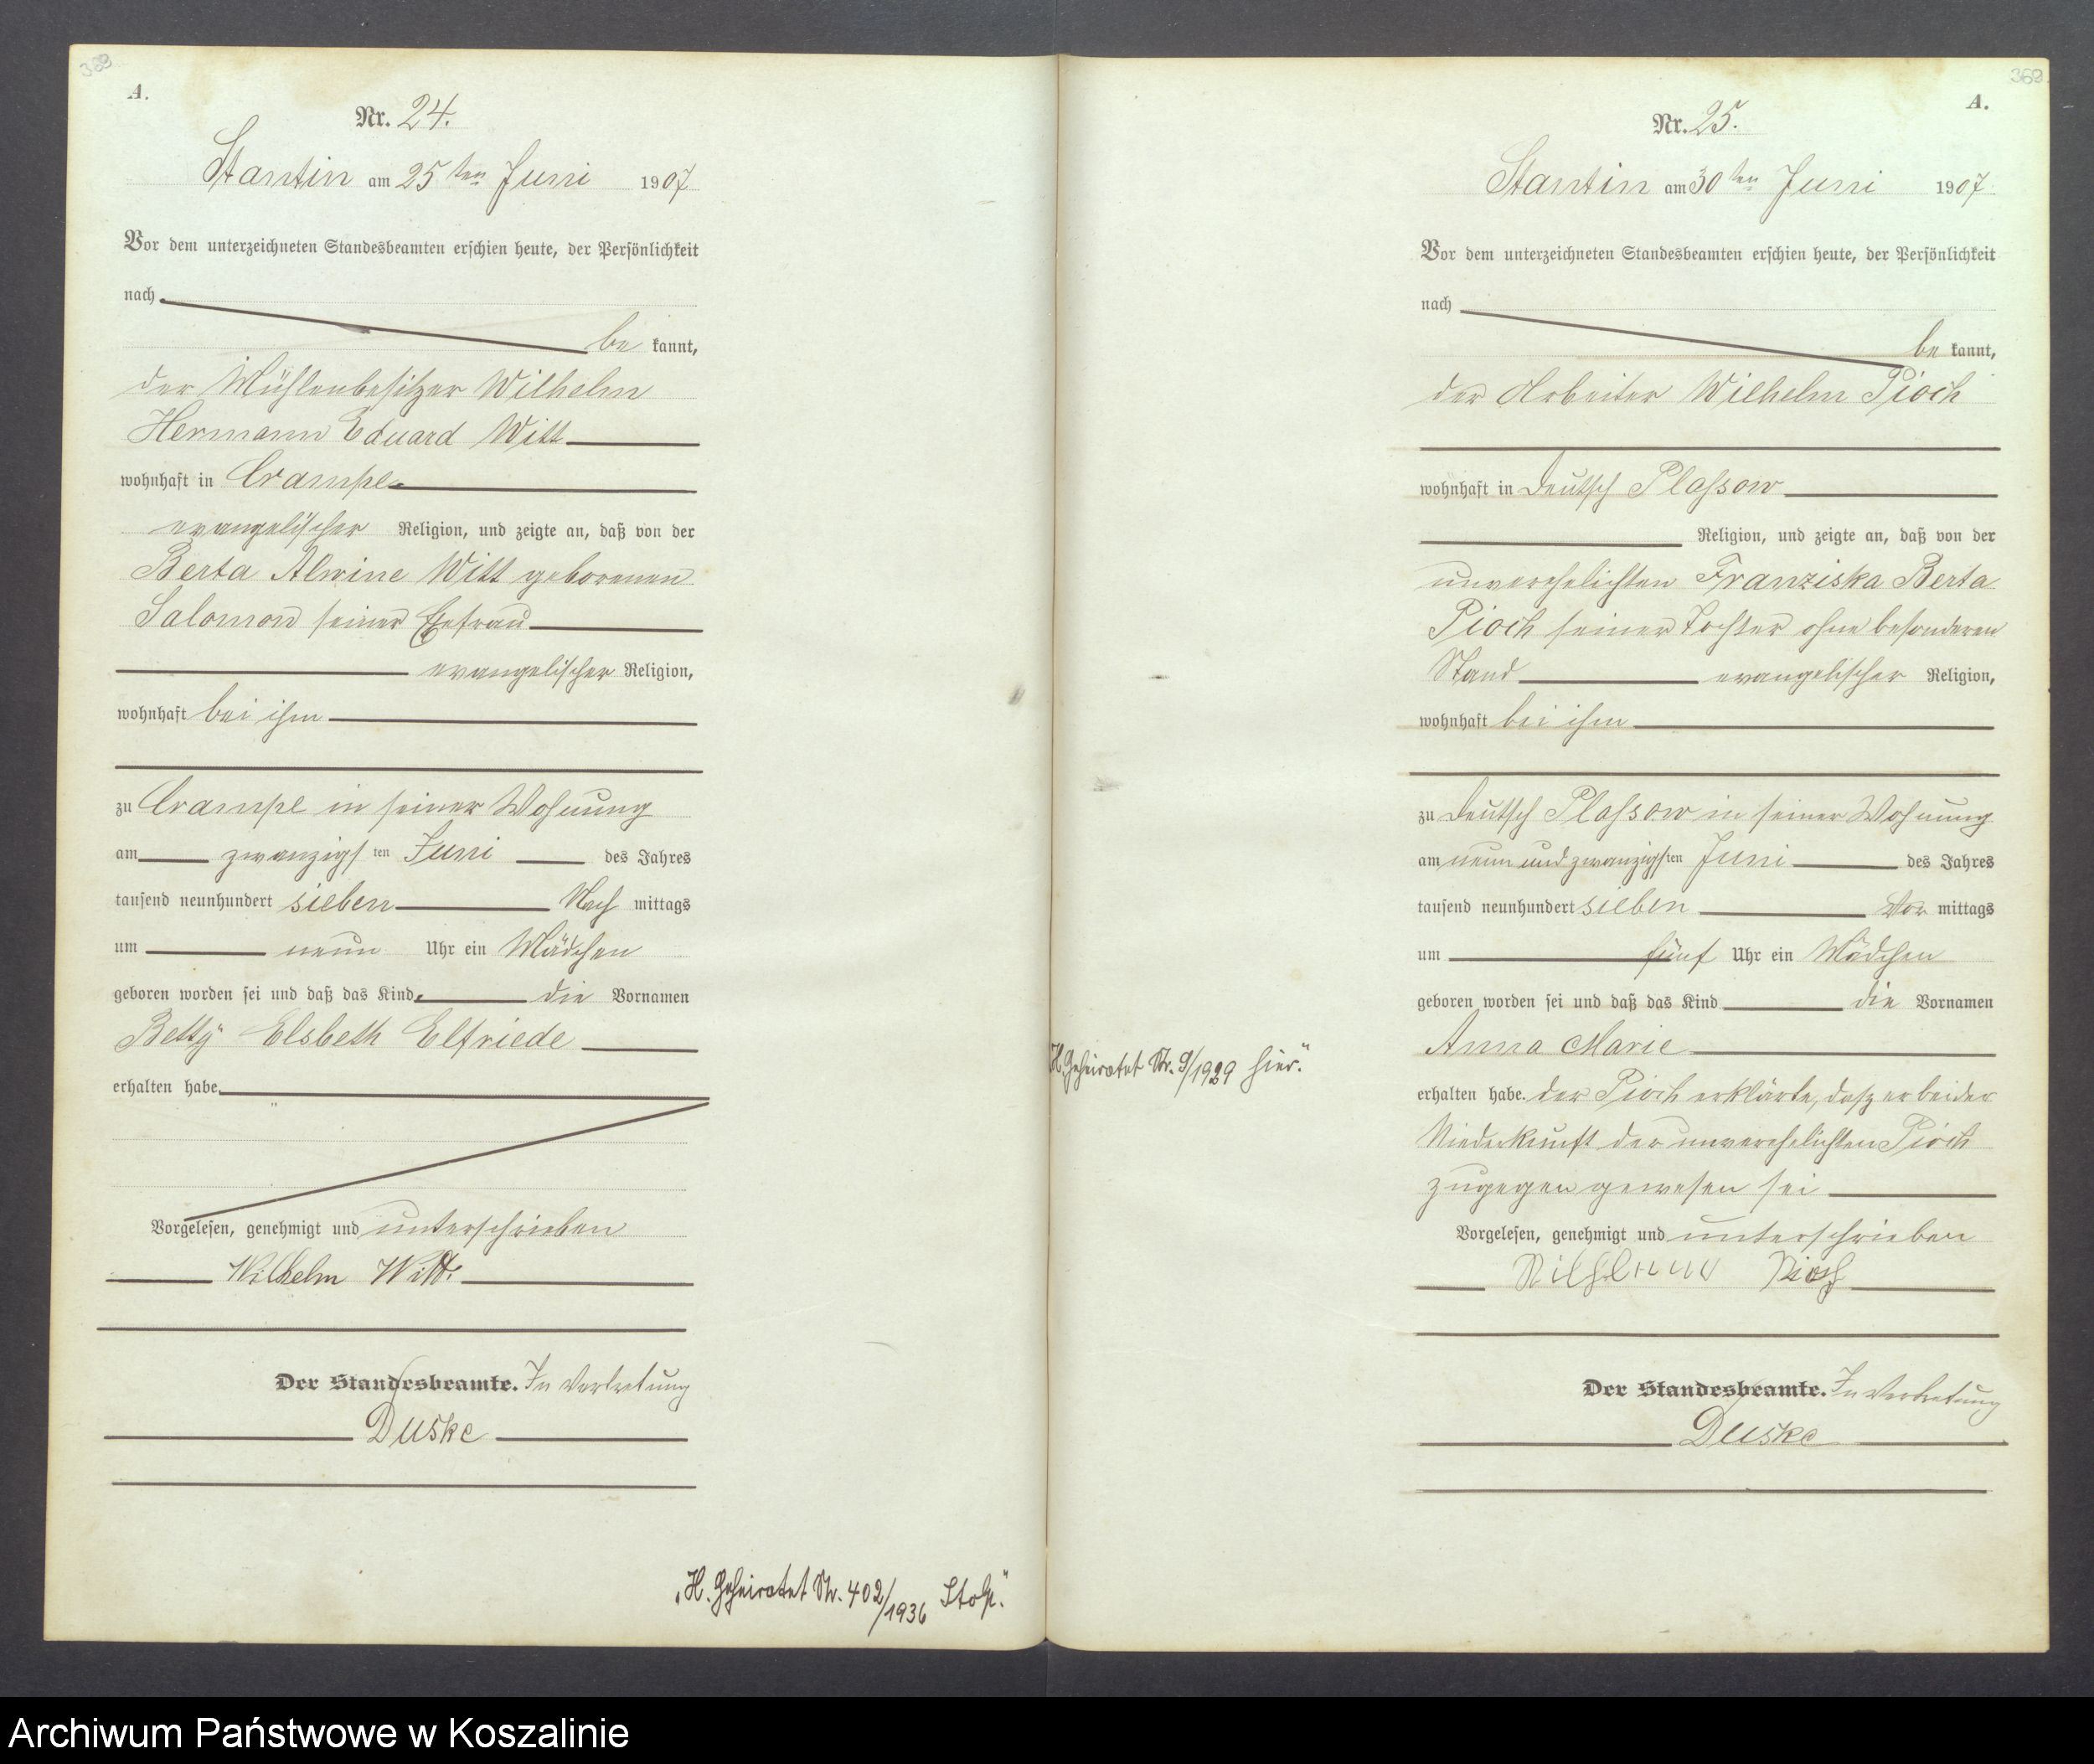 389
A.
Nr. 24.
Stantin am 25ten Juni 1907
Vor dem unterzeichneten Standesbeamten erschien heute, der Persönlichkeit
nach
be kannt,
der Mühlenbesitzer Wilhelm
Hermann Eduard Witt
wohnhaft in Crampe
evangelischer Religion, und zeigte an, daß von der
Berta Alwine Witt geborenen
Salomon seiner Ehefrau
evangelischer Religion,
wohnhaft bei ihm
zu Crampe in seiner Wohnung
am zwanzigsten Juni des Jahres
tausend neunhundert sieben Nach mittags
um neun Uhr ein Mädchen
geboren worden sei und daß das Kind die Vornamen
Betty Elsbeth Elfriede
erhalten habe
Vorgelesen, genehmigt und unterschrieben
Wilhelm Witt.
Der Standesbeamte. In Vertretung
Duske
„H. Geheiratet Nr. 402/1936 Stolp."
368
A.
Nr. 25.
Stantin am 30ten Juni 1907
Vor dem unterzeichneten Standesbeamten erschien heute, der Persönlichkeit
nach
be kannt,
der Arbeiter Wilhelm Pioch
wohnhaft in Deutsch Plassow
Religion, und zeigte an, daß von der
unverehelichten Franziska Berta
Pioch seiner Tochter ohne besonderen
Stand evangelischer Religion,
wohnhaft bei ihm
zu Deutsch Plassow in seiner Wohnung
am neun und zwanzigsten Juni des Jahres
tausend neunhundert sieben Vor mittags
um fünf Uhr ein Mädchen
geboren worden sei und daß das Kind die Vornamen
Anna Marie
H. Geheiratet Nr. 9/1929 hier."
erhalten habe. der Pioch erklärte, dasz er bei der
Niederkunft der unverehelichten Pioch
zugegen gewesen sei
Vorgelesen, genehmigt und unterschrieben
Wilhelm Pioch
Der Standesbeamte. In Vertretung
Duske
Archiwum Państwowe w Koszalinie